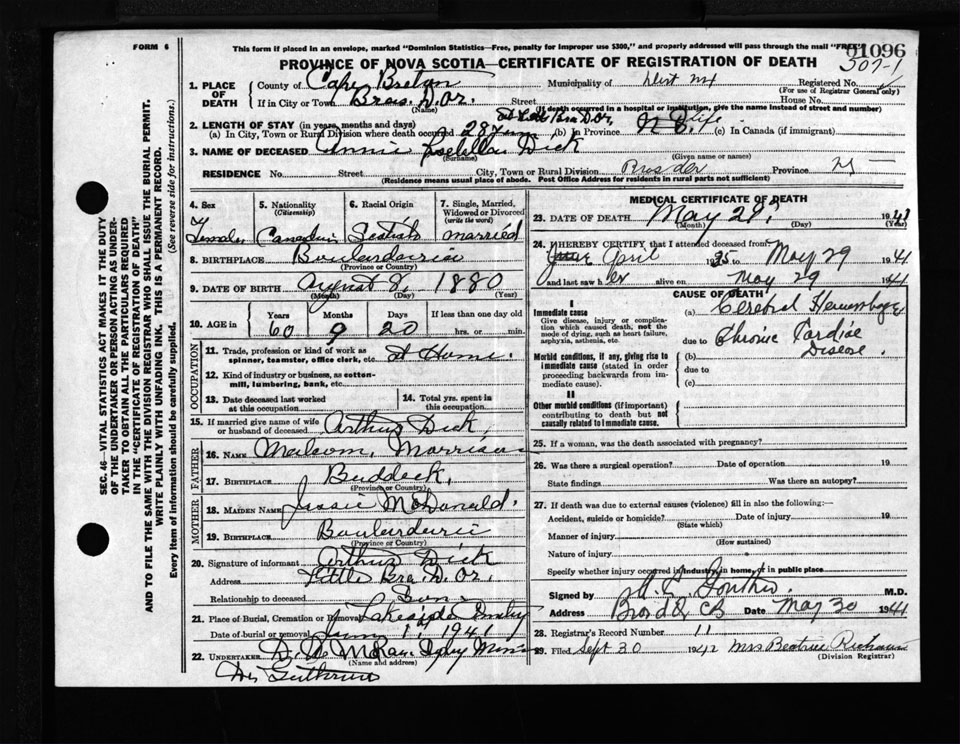 FORM 6
This form if placed in an envelope, marked "Dominion Statistics—Free, penalty for improper use $300," and properly addressed will pass through the mail "FREE"
01096
PROVINCE OF NOVA SCOTIA—CERTIFICATE OF REGISTRATION OF DEATH
507-1
1. PLACE OF DEATH
County of Cape Breton Municipality of Registered No.
(For use of Registrar General only)
If in City or Town Bras. D'Or. Street House No.
(Name) (If death occurred in a hospital or institution, give the name instead of street and number)
2. LENGTH OF STAY (in years, months and days)
(a) In City, Town or Rural Division where death occurred 28 yrs (b) In Province life (c) In Canada (if immigrant)
3. NAME OF DECEASED Annie Dick
(Surname) (Given name or names)
RESIDENCE No. Street City, Town or Rural Division Bras dor Province NS
(Residence means usual place of abode. Post Office Address for residents in rural parts not sufficient)
4. Sex
Female
5. Nationality (Citizenship)
Canadian
6. Racial Origin
Scotish
7. Single, Married, Widowed or Divorced (write the word)
married
8. BIRTHPLACE Boulardarie
(Province or Country)
9. DATE OF BIRTH August 8, 1880
(Month) (Day) (Year)
10. AGE in
Years Months Days If less than one day old
60 9 20 hrs. or min.
OCCUPATION
11. Trade, profession or kind of work as spinner, teamster, office clerk, etc. at Home.
12. Kind of industry or business, as cotton-mill, lumbering, bank, etc.
13. Date deceased last worked at this occupation
14. Total yrs. spent in this occupation
15. If married give name of wife or husband of deceased Arthur Dick
FATHER
16. NAME Malcom Morrison
17. BIRTHPLACE Baddeck,
(Province or Country)
MOTHER
18. MAIDEN NAME Jessie McDonald.
19. BIRTHPLACE Boulardarie
(Province or Country)
20. Signature of informant Arthur Dick
Address Little Bra. D'Or.
Relationship to deceased Son
21. Place of Burial, Cremation or Removal Lakeside
Date of burial or removal June 1, 1941
22. UNDERTAKER D. W. McRae
(Name and address)
MEDICAL CERTIFICATE OF DEATH
23. DATE OF DEATH May 29, 1941
(Month) (Day) (Year)
24. I HEREBY CERTIFY that I attended deceased from
April 1935 to May 29 1941
and last saw her alive on May 29 1941
CAUSE OF DEATH
Immediate cause
Give disease, injury or complication which caused death, not the mode of dying, such as heart failure, asphyxia, asthenia, etc.
(a) Cerebral Hemorrhage
due to Chronic Cardiac Disease.
Morbid conditions, if any, giving rise to immediate cause (stated in order proceeding backwards from immediate cause).
(b)
due to
(c)
II
Other morbid conditions (if important) contributing to death but not causally related to immediate cause.
25. If a woman, was the death associated with pregnancy?
26. Was there a surgical operation? Date of operation 19
State findings Was there an autopsy?
27. If death was due to external causes (violence) fill in also the following:—
Accident, suicide or homicide? Date of injury 19
(State which)
Manner of injury
(How sustained)
Nature of injury
Specify whether injury occurred in industry, in home, or in public place
Signed by M.D.
Address CB Date May 30 1941
28. Registrar's Record Number 11
29. Filed Sept 30 1942 Mrs Beatrice
(Division Registrar)
SEC. 46—VITAL STATISTICS ACT MAKES IT THE DUTY
OF THE UNDERTAKER OR PERSON ACTING AS UNDER-
TAKER TO OBTAIN ALL THE PARTICULARS REQUIRED
IN THE "CERTIFICATE OF REGISTRATION OF DEATH"
AND TO FILE THE SAME WITH THE DIVISION REGISTRAR WHO SHALL ISSUE THE BURIAL PERMIT.
WRITE PLAINLY WITH UNFADING INK. THIS IS A PERMANENT RECORD.
Every item of information should be carefully supplied. (See reverse side for instructions.)